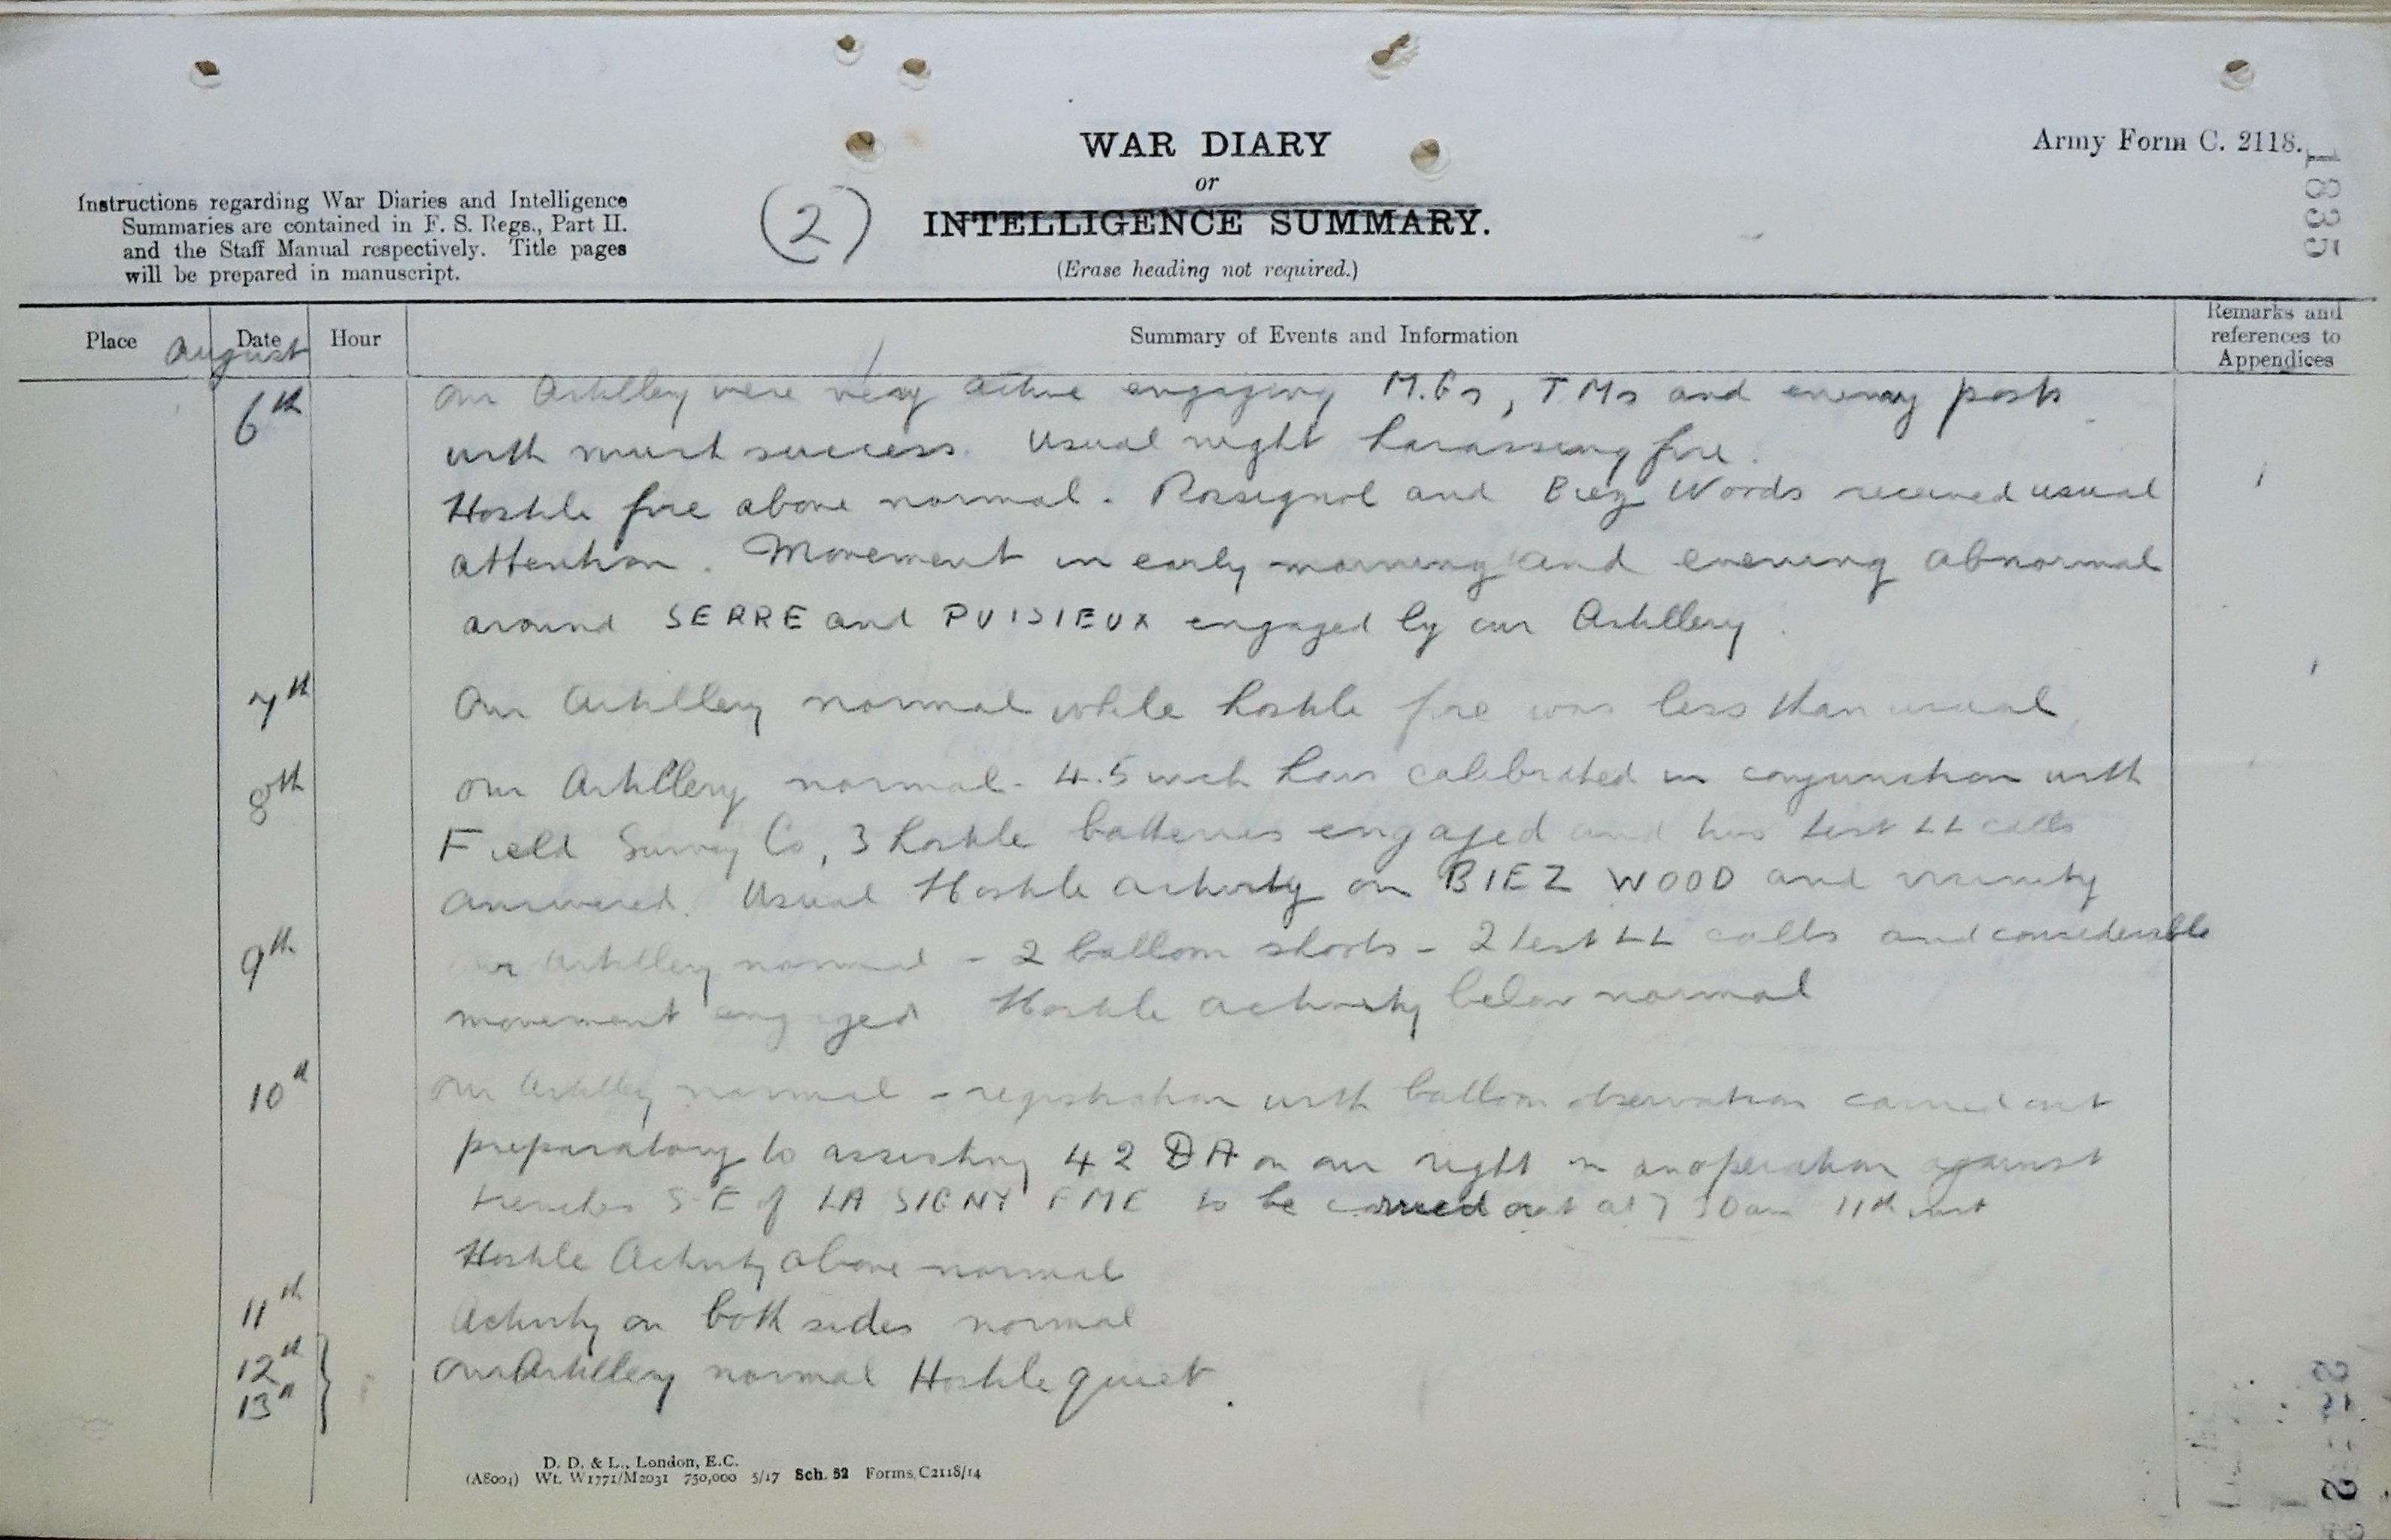 Army Form C. 2118.
1835
WAR DIARY
or
INTELLIGENCE SUMMARY.
(Erase heading not required.)
Instructions regarding War Diaries and Intelligence
Summaries are contained in F. S. Regs., Part II.
and the Staff Manual respectively. Title pages
will be prepared in manuscript.
(2)
Place
Date
Hour
Summary of Events and Information
Remarks and
references to
Appendices
August
6th Our Artillery were very active engaging M.Gs, T.Ms and enemy posts
with much success. Usual night harassing fire.
Hostile fire above normal. Rossignol and Biez Woods received usual
attention. Movement in early morning and evening abnormal
around SERRE and PUISIEUX engaged by our Artillery.
7th Our Artillery normal while hostile fire was less than usual
8th Our Artillery normal - 4.5 inch hows calibrated in conjunction with
Field Survey Co, 3 hostile batteries engaged and two test LL calls
answered. Usual Hostile activity on BIEZ WOOD and vicinity
9th Our Artillery normal - 2 balloon shoots - 2 test LL calls and considerable
movement engaged Hostile activity below normal
10th Our Artillery normal - registration with balloon observation carried out
preparatory to assisting 42 DA on our right in an operation against
trenches S-E of LA SIGNY FME to be carried out at 7 30 am 11th inst
Hostile Activity above normal
11th Activity on both sides normal
12th } Our Artillery normal Hostile quiet.
13th
D. D. & L., London, E.C.
(A8004) Wt. W1771/M2031 750,000 5/17 Sch. 52 Forms, C2118/14